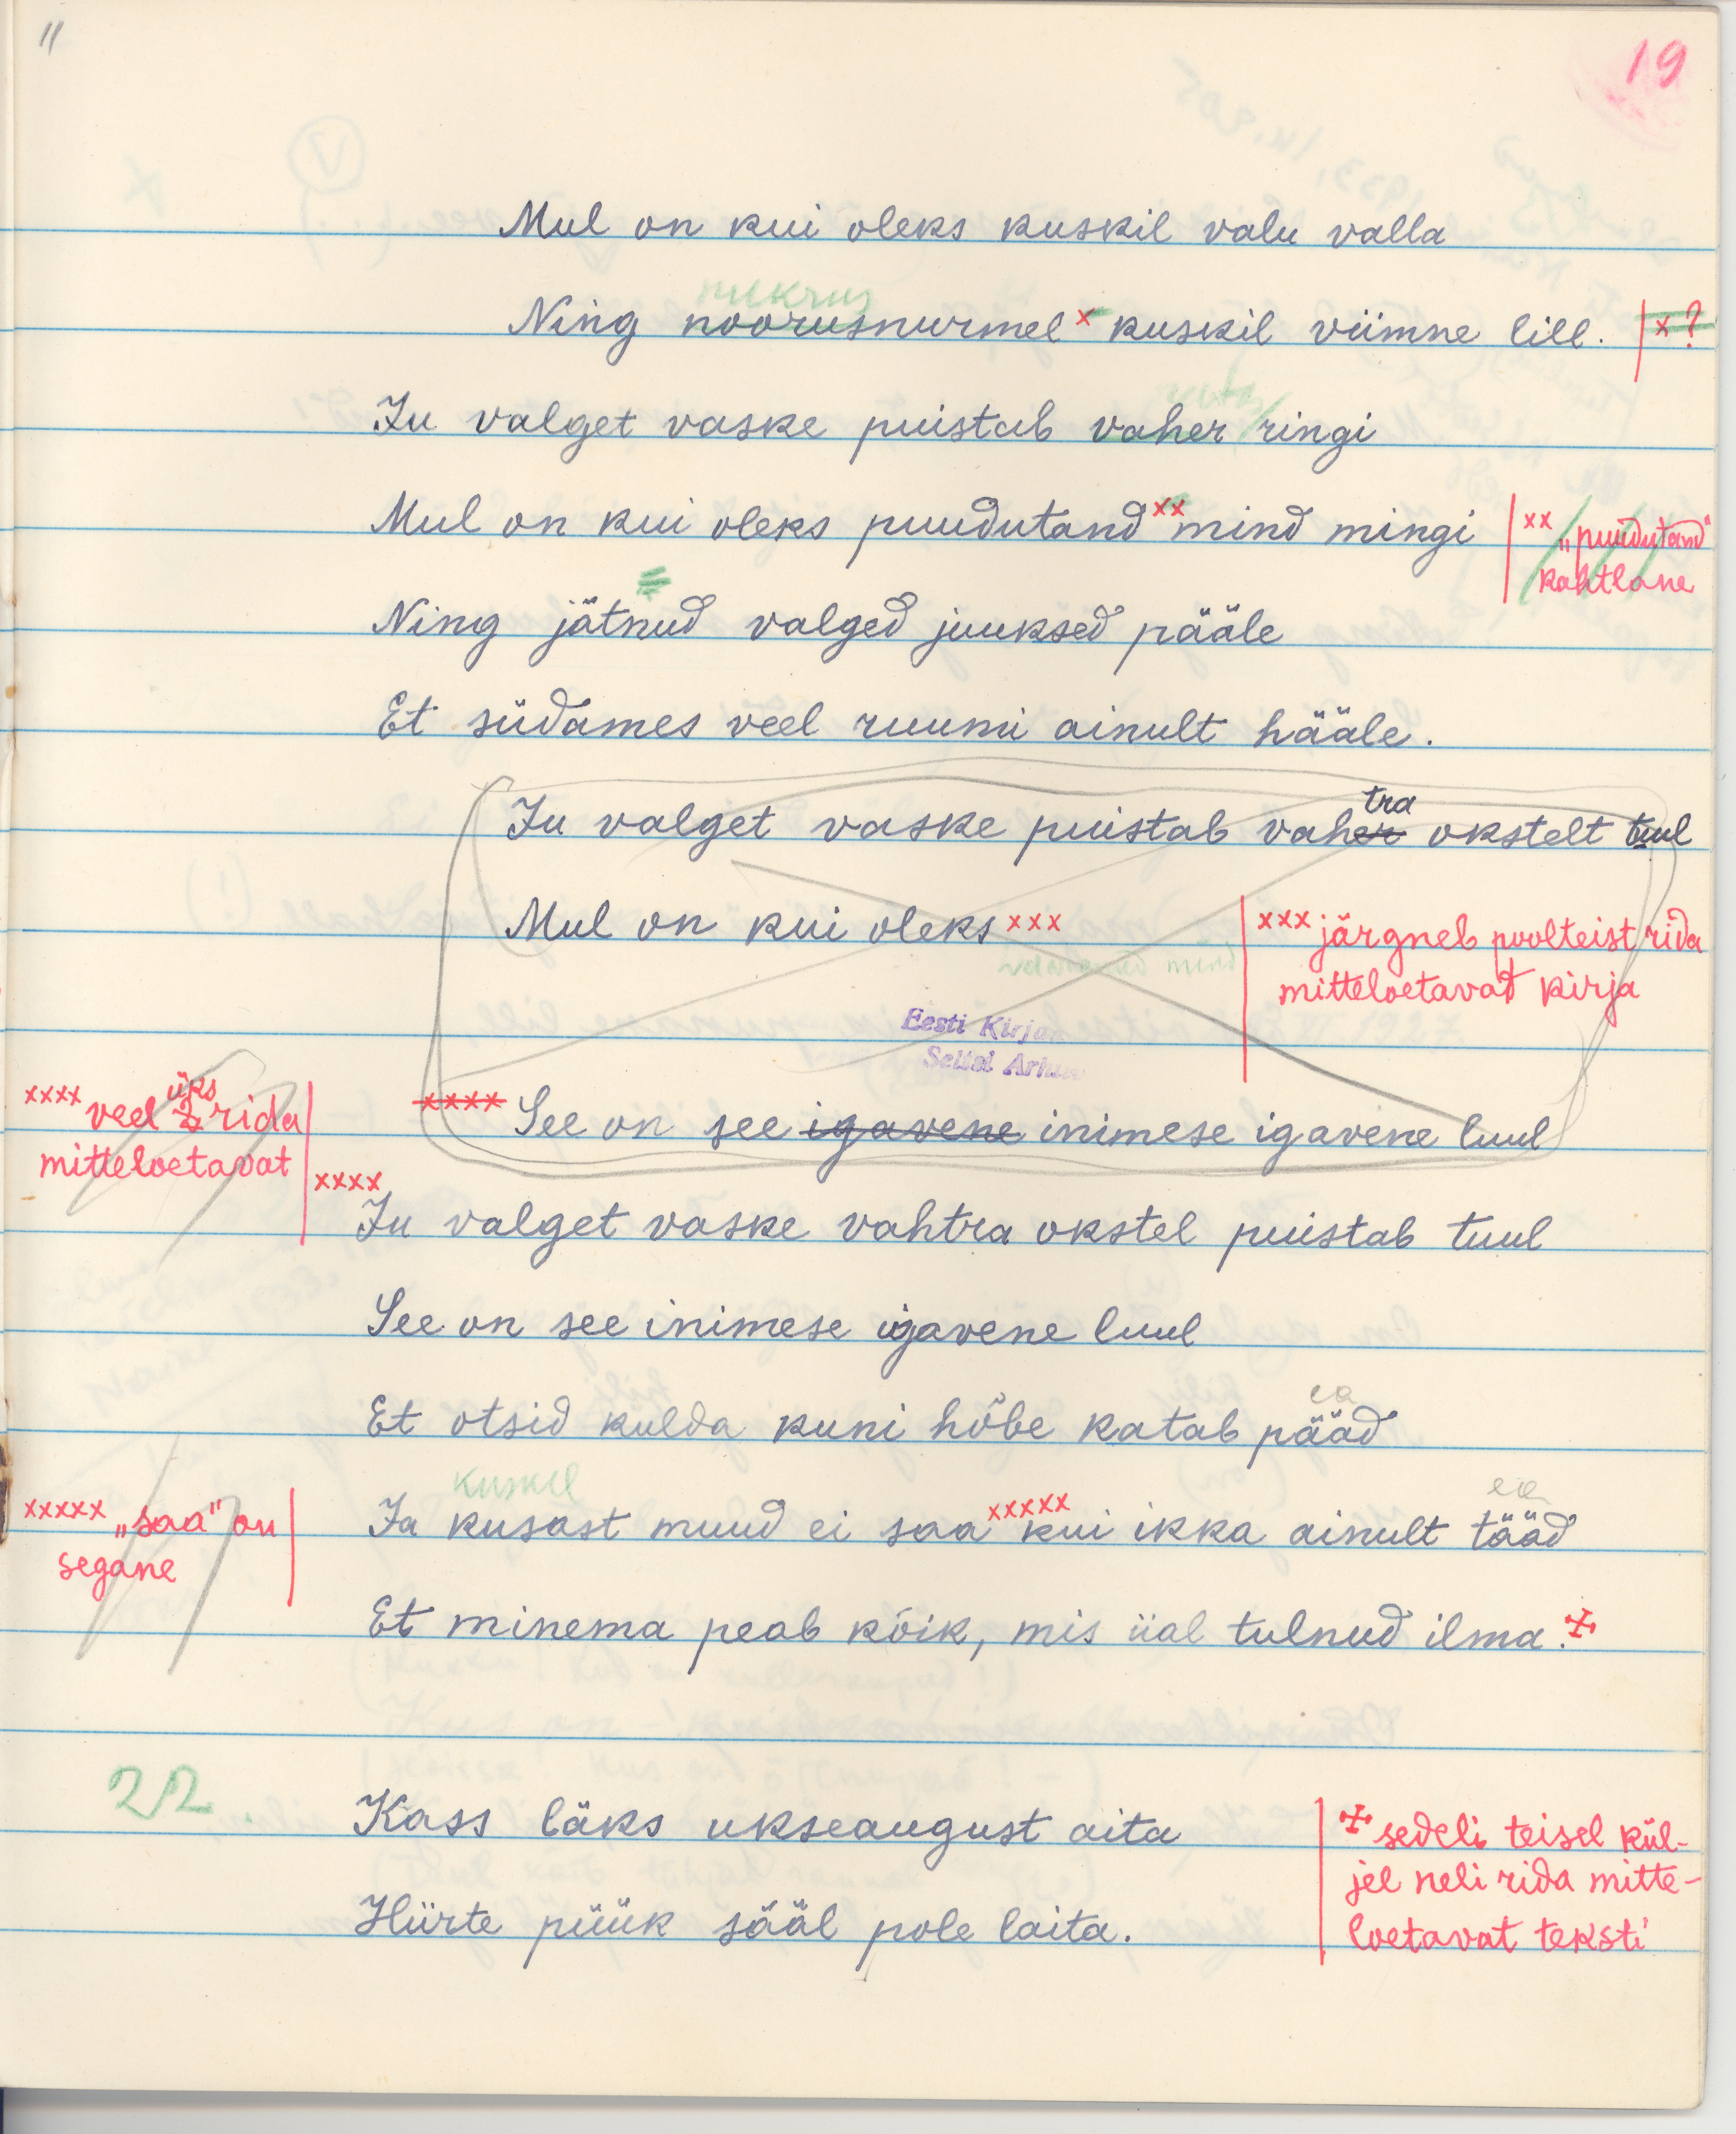 11
19
Mul on kui oleks kuskil valu valla
Ning noorusnurmel x kuskil viimne lill. x?
Ju valget vaske puistab vaher ringi
Mul on kui oleks puudutand xx mind mingi
xx „puudutand"
kahtlane
Ning jätnud valged juuksed pääle
Et südames veel ruumi ainult hääle.
tra
Ju valget vaske puistab vaher okstelt tuul
Mul on kui oleks xxx
xxx järgneb poolteist rida
mitteloetavat kirja
mind
Eesti Kirjan
Seltsi Arhiiv
xxxx See on see igavene inimese igavene luul
xxxx veel 2 üks rida
mitteloetavat
xxxx
Ju valget vaske vahtra okstel puistab tuul
See on see inimese igavene luul
ea
Et otsid kulda kuni hõbe katab pääd
kuskil
ea
Ja kusast muud ei saa xxxxx kui ikka ainult tääd
xxxxx „saa" on
segane
Et minema peab kõik, mis iial tulnud ilma. ±
22.
Kass läks ukseaugust aita
Hiirte püük sääl pole laita.
± sedeli teisel kül-
jel neli rida mitte-
loetavat teksti